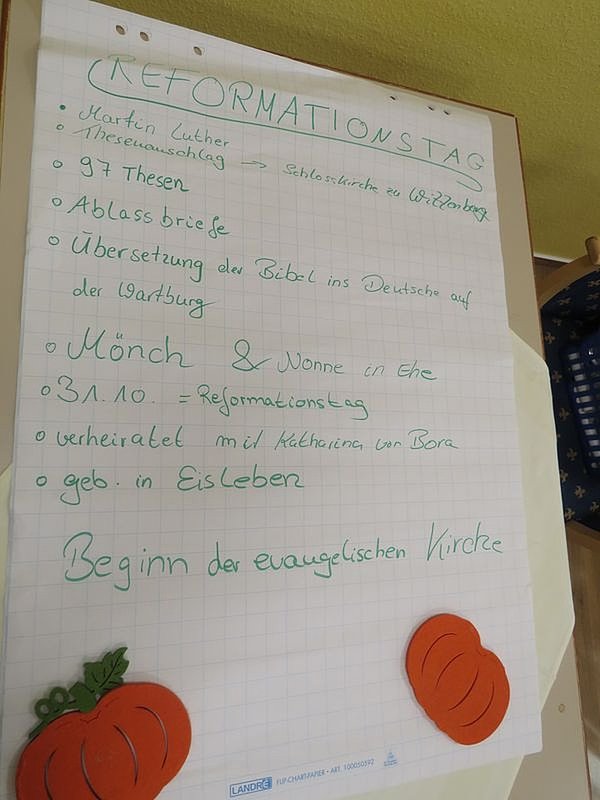 REFORMATIONSTAG
• Martin Luther
○ Thesenanschlag → Schlosskirche zu Wittenberg
○ 97 Thesen
○ Ablassbriefe
○ Übersetzung der Bibel ins Deutsche auf
der Wartburg
○ Mönch & Nonne in Ehe
○ 31.10. = Reformationstag
○ verheiratet mit Katharina von Bora
○ geb. in Eisleben
Beginn der evangelischen Kirche
LANDRÉ FLIP-CHART-PAPIER • ART. 100050592